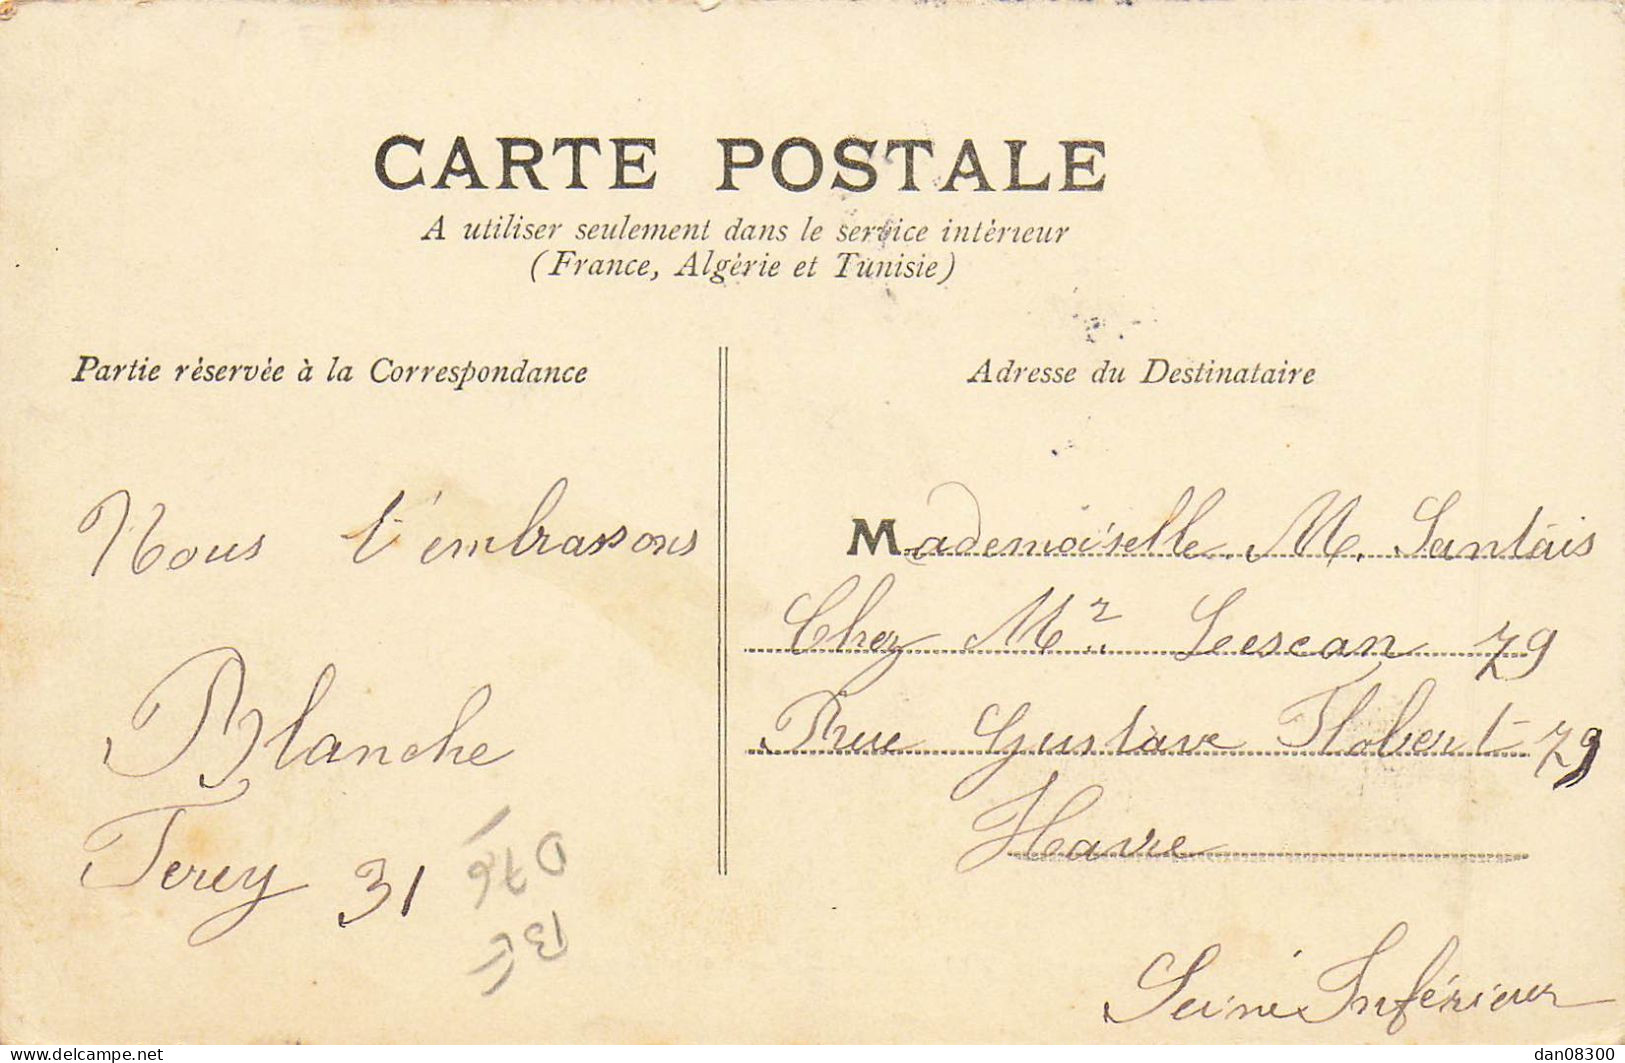 CARTE POSTALE
A utiliser seulement dans le service intérieur
(France, Algérie et Tunisie)
Partie réservée à la Correspondance
Adresse du Destinataire
Nous t'embrassons
Blanche
Terey 31
D76
Mademoiselle M. Santais
Chez Mr Leescan 79
Rue Gustave Flobert 79
Havre
Seine Inférieur
delcampe.net
dan08300